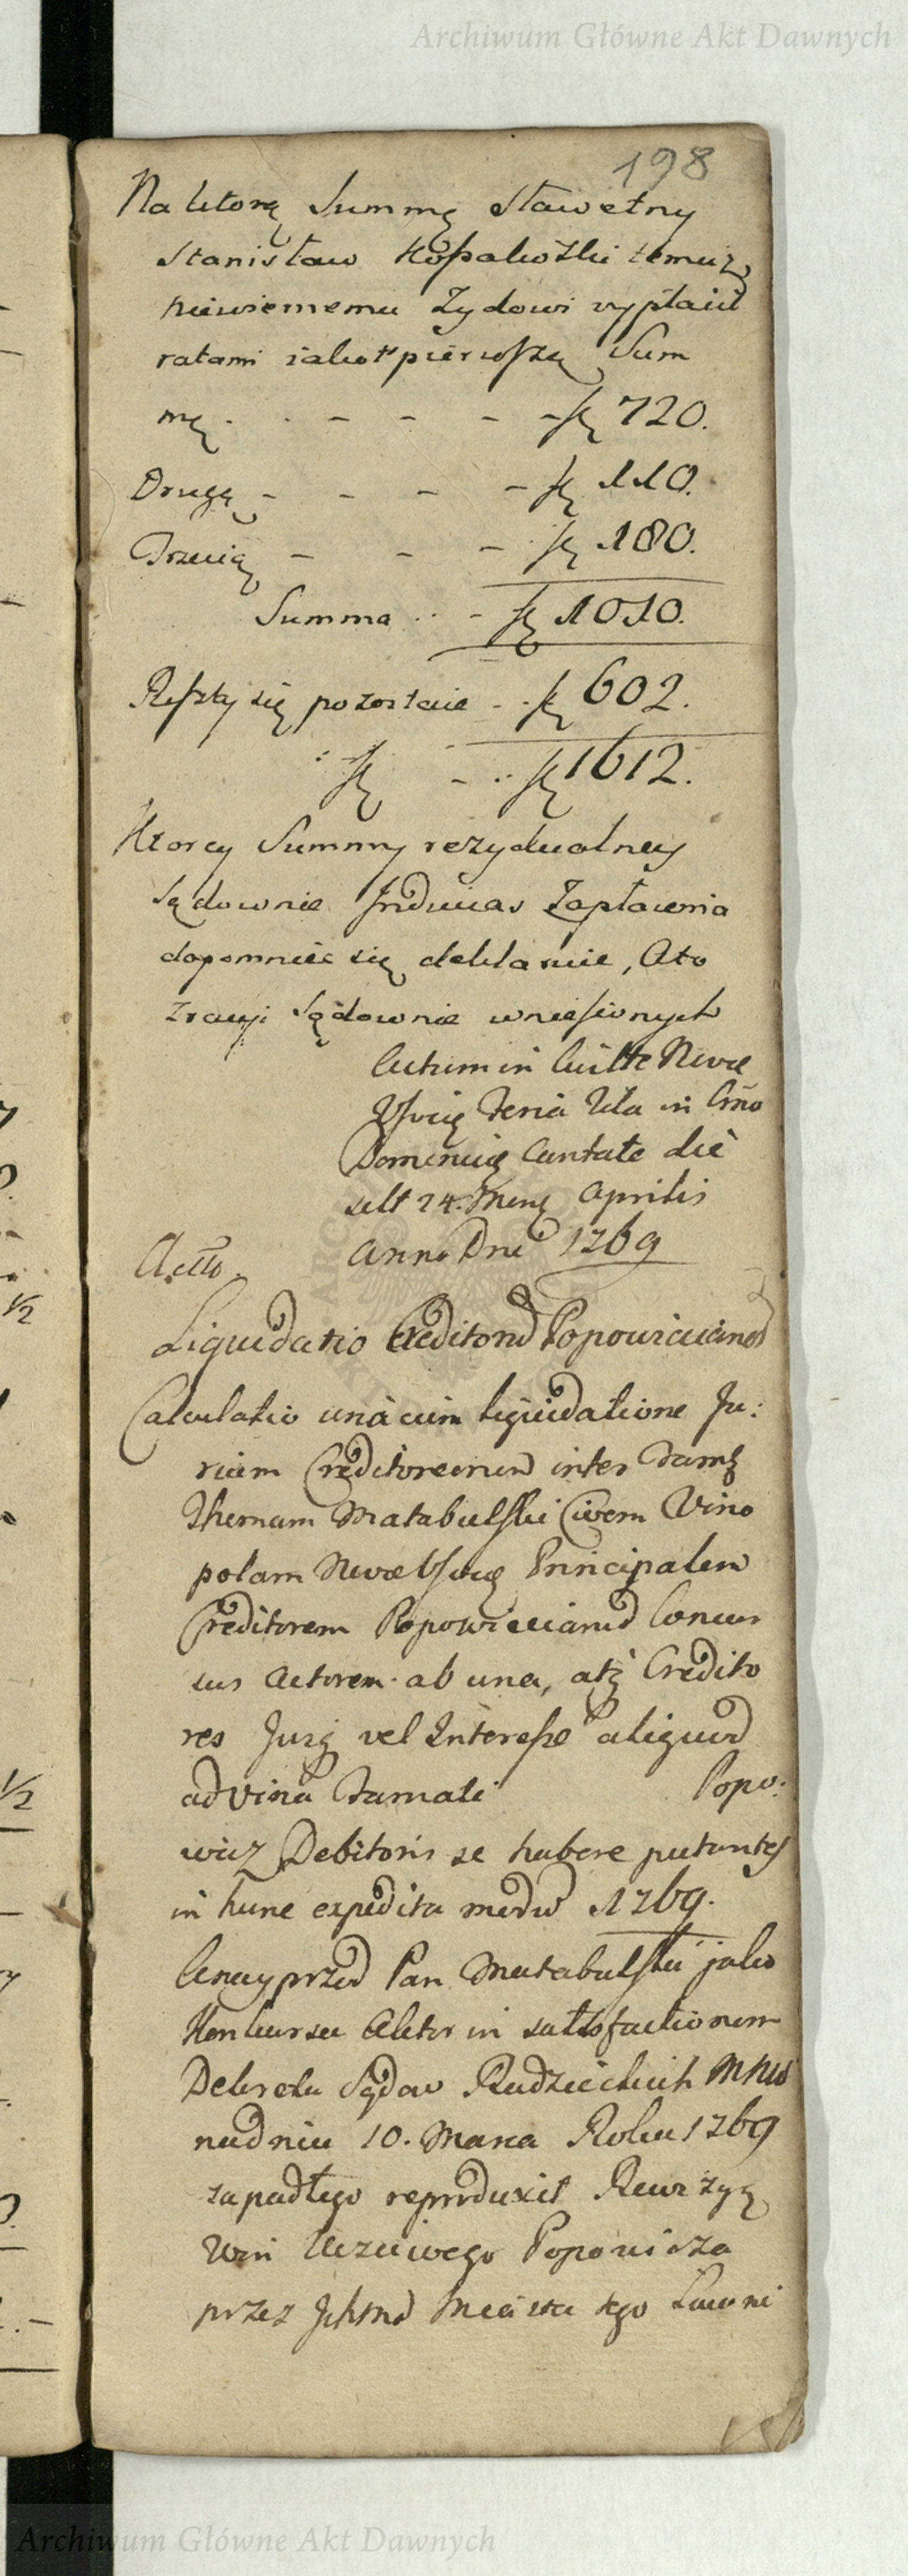 Archiwum Główne Akt Dawnych
198
Na ktorą Summę Sławetny
Stanisław temuz
niewiernemu Zydowi vypłacił
ratami iako to pierwszą Sum
mę - - - - 720.
Drugą - - - - 110.
Trzecią - - - 180.
Summa - 1010.
Reszty się pozostaie - 602.
1612.
Ktorey Summy rezydualney
sądownie Inducias Zapłacenia
dopomnieć się deklaruie, Ato
z racyi Sądownie wniesionych
Actum in
Feria in Crño
Dominicę Cantate die
scilt 24. Menẽ Aprilis
Anno Dni 1769
Actũ.
Liquidatio Creditorũ Popowicianorũ
Calculatio unà cum liquidatione Ju:
rium Creditorum inter Famt̃
Thomam Matabulski Civem Vino
polam Principalem
Creditorem Popowicianũ Concur
sus Actorem ab una, atq̃ Credito
res Jurĩs vel Interesse aliquod
ad vina Famati Popo:
wicz Debitoris se habere putantes
in hunc expedita modũ 1769.
A nayprzod Pan Matabulski jako
Konkursu Aktor in satisfactionem
Dekretu Sądow Radzieckich
na dniu 10. Marca Roku 1769
zapadłego reproduxit Rewizyą
Win Uczciwego Popowicza
przez Miasta tego Ławni
Archiwum Główne Akt Dawnych